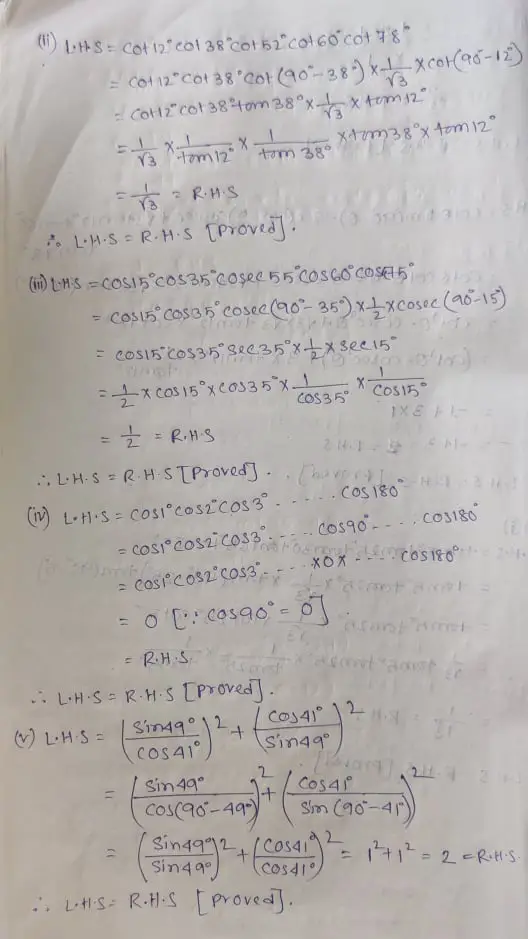 (ii) L.H.S = cot12° cot38° cot52° cot60° cot78°
= cot12° cot38° cot(90°-38°) × 1/√3 × cot(90°-12°)
= cot12° cot38° tan38° × 1/√3 × tan12°
= 1/√3 × 1/tan12° × 1/tan38° × tan38° × tan12°
= 1/√3 = R.H.S
∴ L.H.S = R.H.S [Proved].
(iii) L.H.S = cos15° cos35° cosec55° cos60° cosec75°
= cos15° cos35° cosec(90°-35°) × 1/2 × cosec(90°-15°)
= cos15° cos35° sec35° × 1/2 × sec15°
= 1/2 × cos15° × cos35° × 1/cos35° × 1/cos15°
= 1/2 = R.H.S
∴ L.H.S = R.H.S [Proved].
(iv) L.H.S = cos1° cos2° cos3° ...... cos180°
= cos1° cos2° cos3° ..... cos90° .... cos180°
= cos1° cos2° cos3° .... ×0× .... cos180°
= 0 [∵ cos90° = 0]
= R.H.S.
∴ L.H.S = R.H.S [Proved].
(v) L.H.S = (sin49°/cos41°)² + (cos41°/sin49°)²
= (sin49°/cos(90°-49°))² + (cos41°/sin(90°-41°))²
= (sin49°/sin49°)² + (cos41°/cos41°)² = 1²+1² = 2 = R.H.S.
∴ L.H.S = R.H.S [Proved].